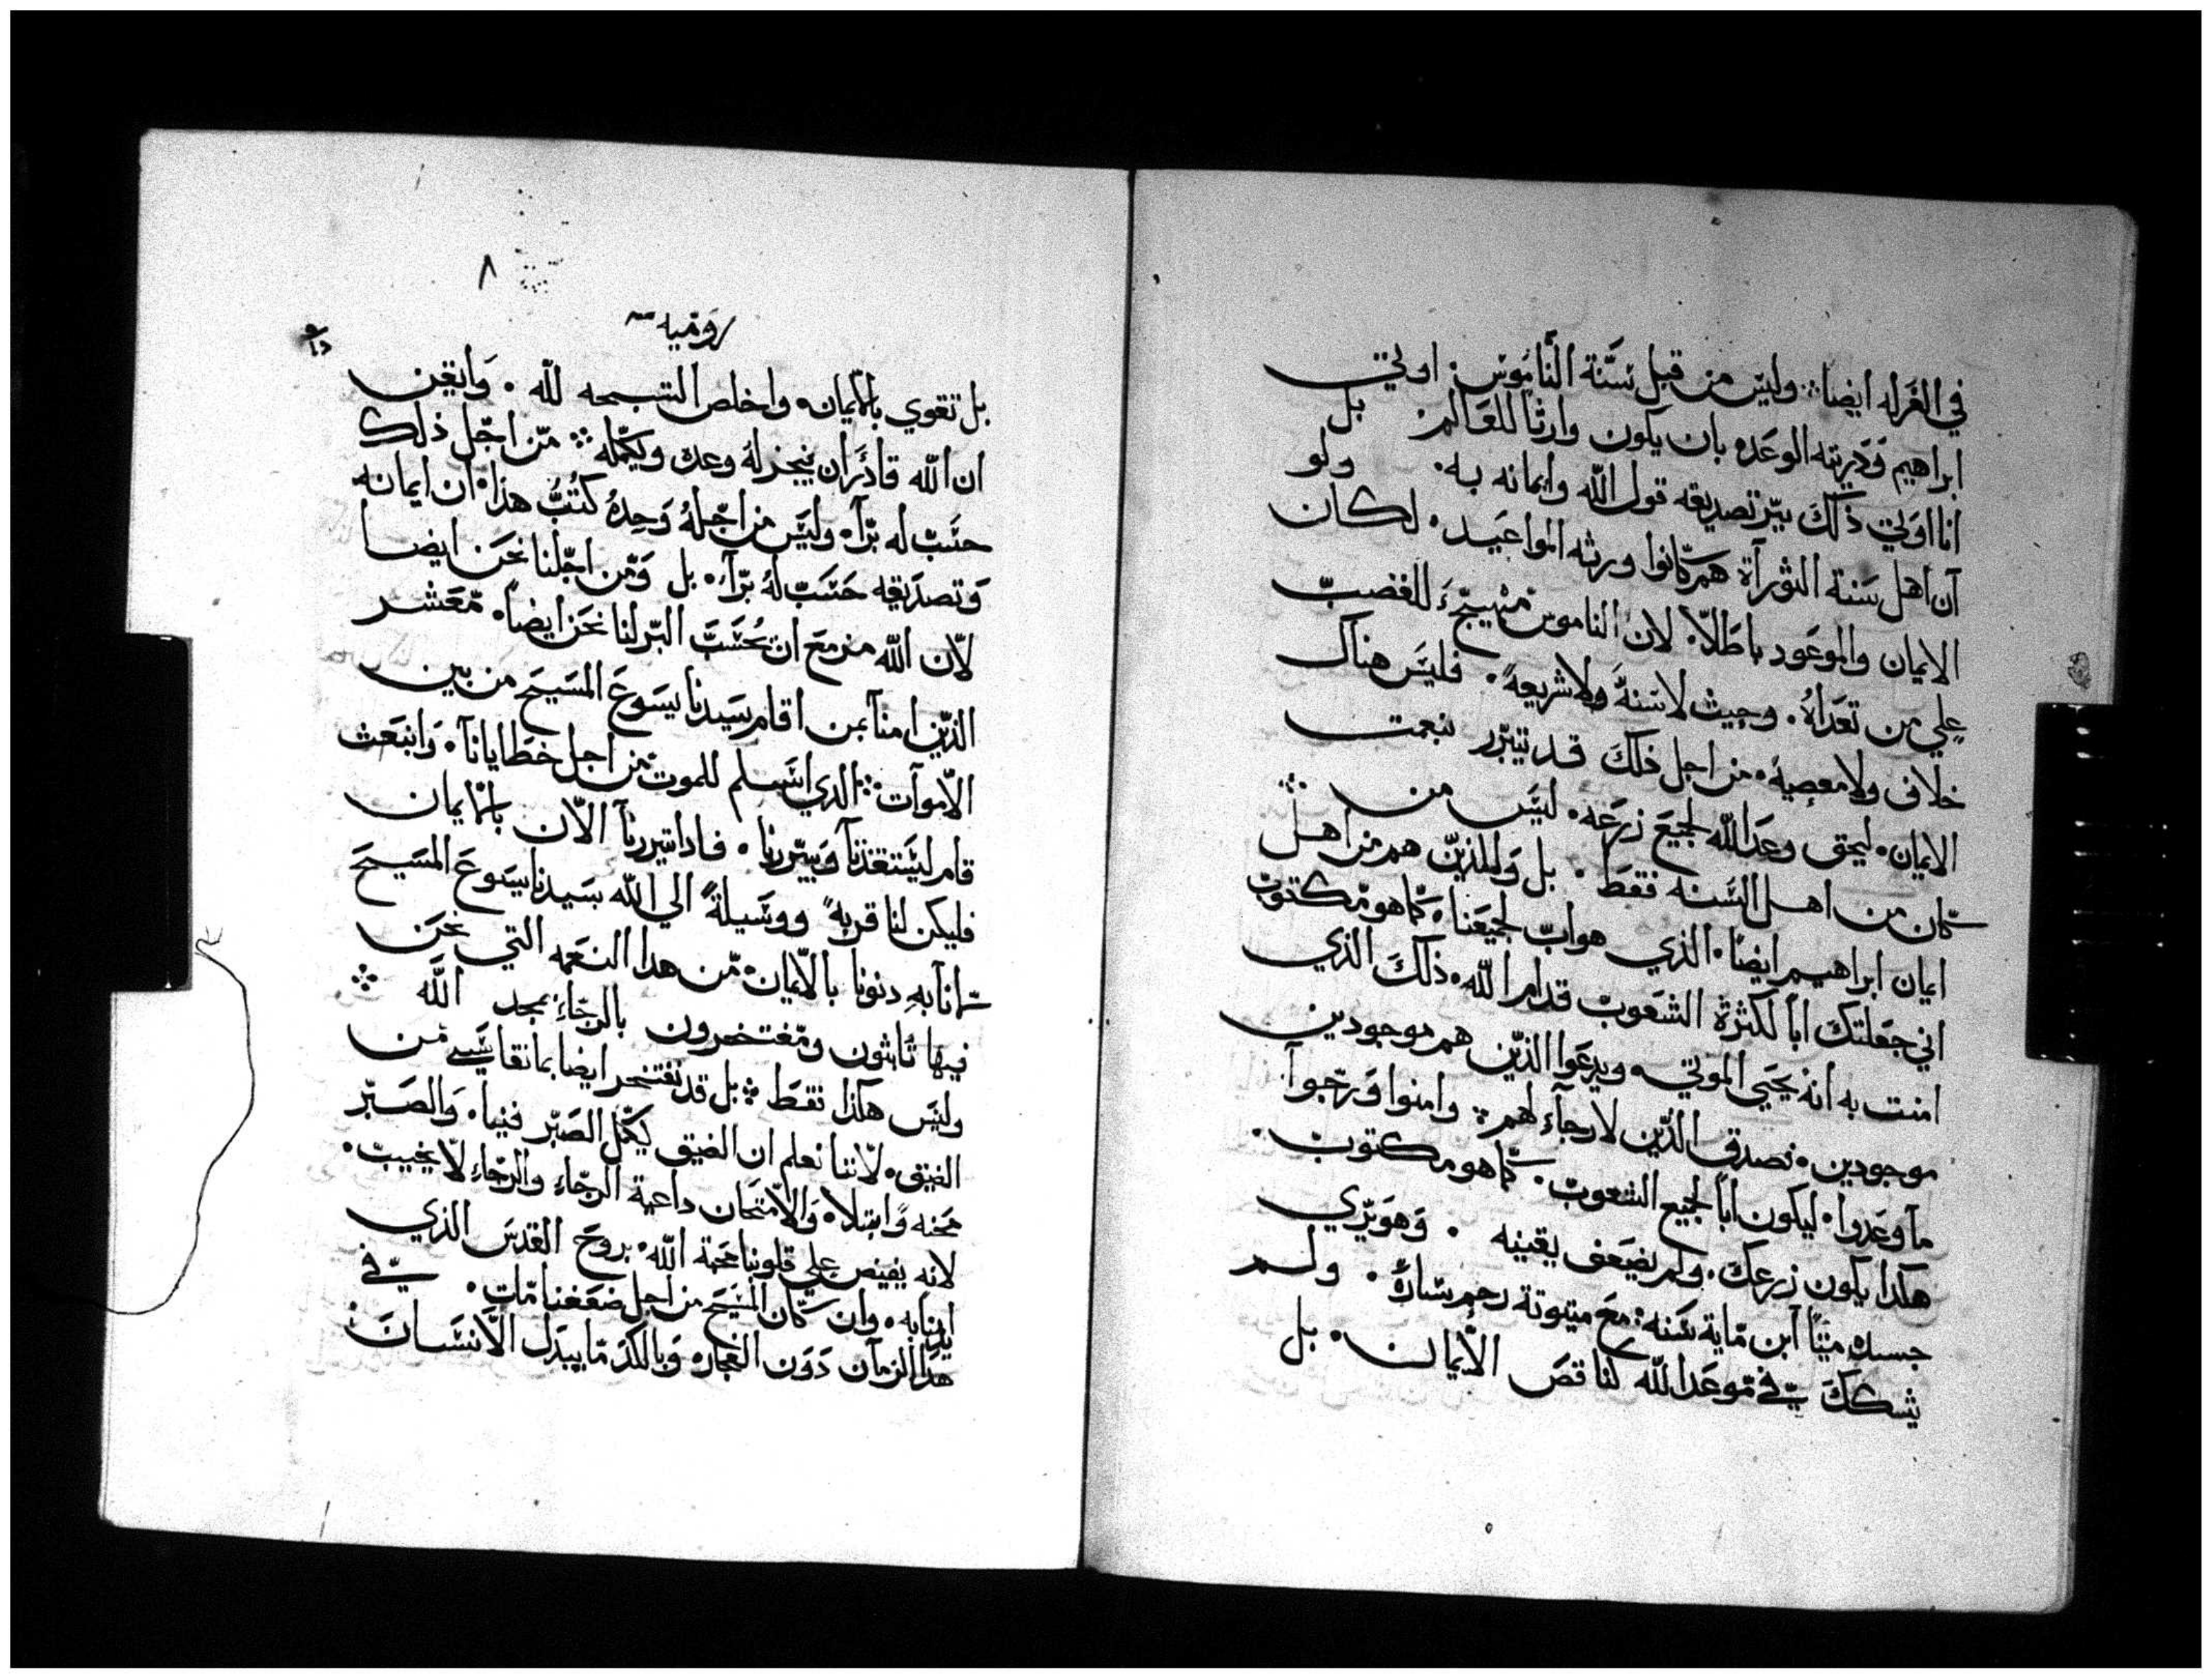 في الغرله ايضا ∴ وليس من قبل سنة الناموس. اوتي
ابراهيم وذريته الوعده بان يكون وارثا للعالم. بل
انا اوتي ذلك ببر تصديقه قول الله وايمانه به. ولو
ان اهل سنة التوراة هم كانوا ورثه المواعيد. لكان
الايمان والموعود باطلا. لان الناموس مهيج للغضب
علي من تعداه. وحيث لا سنة ولا شريعه. فليس هناك
خلاف ولا معصيه. من اجل ذلك قد نتبرر بنعمت
الايمان. ليحق وعد الله لجميع زرعه. ليس من
كان من اهل السنه فقط. بل وللذين هم من اهل
ايمان ابراهيم ايضا. الذي هو اب لجميعنا. كما هو مكتوب
اني جعلتك ابا لكثرة الشعوب قدام الله. ذلك الذي
امنت به انه يحيي الموتي. ويدعوا الذين هم موجودين
موجودين. نصدق الذين لا رجاء لهم ∴ وامنوا ورجوا
ما وعدوا. ليكون ابا لجميع الشعوب. كما هو مكتوب.
هكدا يكون زرعك. ولم يضعف يقينه. وهو يري
جسده ميتا ابن ماية سنه. مع ميتوتة رحم ساره. ولم
يشكك في موعد الله كناقص الايمان. بل
٨
روميه
بل تقوي بالايمان. واخلص التسبحه لله. وايقن
ان الله قادر ان ينجز له وعده ويكمله ∴ من اجل ذلك
حسب له برا. وليس من اجله وحده كتب هذا. ان ايمانه
وتصديقه حسب له برا. بل ومن اجلنا نحن ايضا
لان الله مزمع ان يحسب البر لنا نحن ايضا. معشر
الذين امنا بمن اقام سيدنا يسوع المسيح من بين
الاموات ∴ الدي اسلم للموت من اجل خطايانا. وانبعث
قام ليستنقذنا ويبررنا. فاداتبررنا الان بالايمان
فليكن لنا قربه ووسيلة الي الله بسيدنا يسوع المسيح
انا به دنونا بالايمان. من هدا النعمه التي نحن
فيها ثابتون ومفتخرون بالرجاء بمجد الله ∴
وليس هكذا فقط ∴ بل قد نفتخر ايضا بما نقاسي من
الضيق. لاننا نعلم ان الضيق يكمل الصبر فينا. والصبر
محنه وابتلا. والامتحان داعية الرجاء والرجاء لا يخيب.
لانه يفيض علي قلوبنا محبة الله. بروح القدس الذي
ايدنا به. وان كان المسيح من اجل ضعفنا مات. في
هدا الزمان دون الفجاره وبالكد ما يبدل الانسان